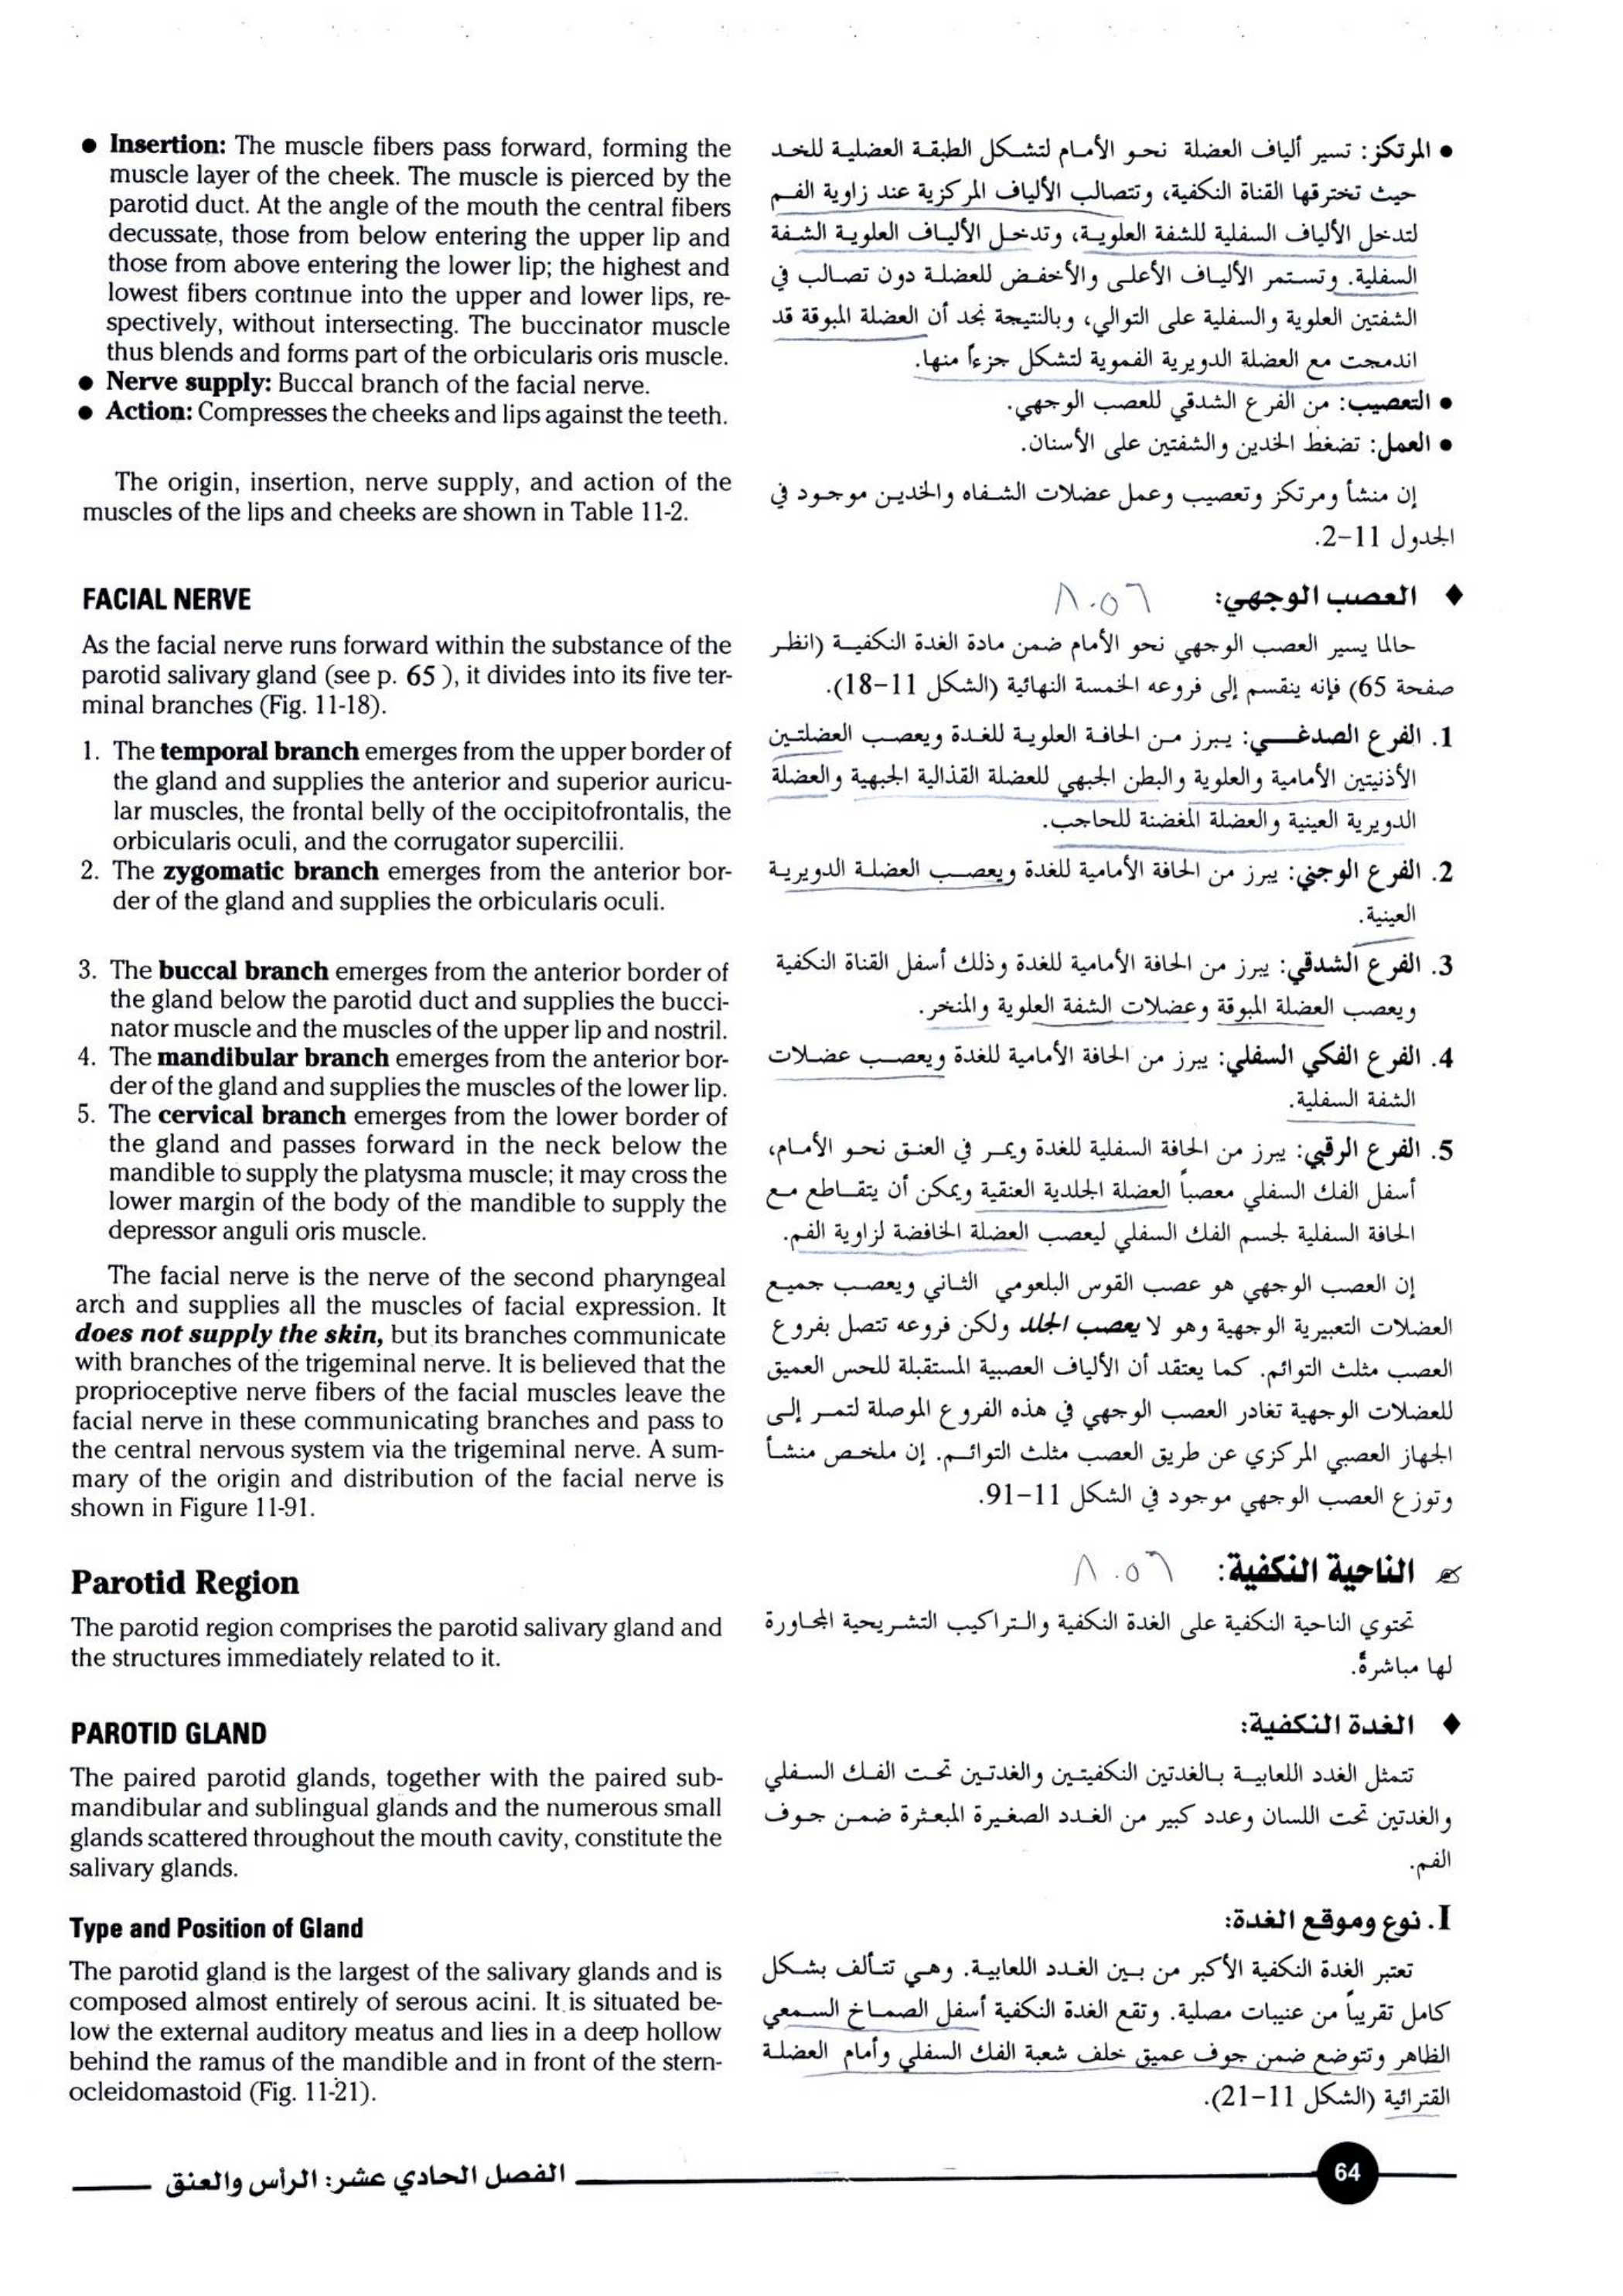 ● Insertion: The muscle fibers pass forward, forming the
muscle layer of the cheek. The muscle is pierced by the
parotid duct. At the angle of the mouth the central fibers
decussate, those from below entering the upper lip and
those from above entering the lower lip; the highest and
lowest fibers continue into the upper and lower lips, re-
spectively, without intersecting. The buccinator muscle
thus blends and forms part of the orbicularis oris muscle.
● Nerve supply: Buccal branch of the facial nerve.
● Action: Compresses the cheeks and lips against the teeth.
The origin, insertion, nerve supply, and action of the
muscles of the lips and cheeks are shown in Table 11-2.
FACIAL NERVE
As the facial nerve runs forward within the substance of the
parotid salivary gland (see p. 65 ), it divides into its five ter-
minal branches (Fig. 11-18).
1. The temporal branch emerges from the upper border of
the gland and supplies the anterior and superior auricu-
lar muscles, the frontal belly of the occipitofrontalis, the
orbicularis oculi, and the corrugator supercilii.
2. The zygomatic branch emerges from the anterior bor-
der of the gland and supplies the orbicularis oculi.
3. The buccal branch emerges from the anterior border of
the gland below the parotid duct and supplies the bucci-
nator muscle and the muscles of the upper lip and nostril.
4. The mandibular branch emerges from the anterior bor-
der of the gland and supplies the muscles of the lower lip.
5. The cervical branch emerges from the lower border of
the gland and passes forward in the neck below the
mandible to supply the platysma muscle; it may cross the
lower margin of the body of the mandible to supply the
depressor anguli oris muscle.
The facial nerve is the nerve of the second pharyngeal
arch and supplies all the muscles of facial expression. It
does not supply the skin, but its branches communicate
with branches of the trigeminal nerve. It is believed that the
proprioceptive nerve fibers of the facial muscles leave the
facial nerve in these communicating branches and pass to
the central nervous system via the trigeminal nerve. A sum-
mary of the origin and distribution of the facial nerve is
shown in Figure 11-91.
Parotid Region
The parotid region comprises the parotid salivary gland and
the structures immediately related to it.
PAROTID GLAND
The paired parotid glands, together with the paired sub-
mandibular and sublingual glands and the numerous small
glands scattered throughout the mouth cavity, constitute the
salivary glands.
Type and Position of Gland
The parotid gland is the largest of the salivary glands and is
composed almost entirely of serous acini. It is situated be-
low the external auditory meatus and lies in a deep hollow
behind the ramus of the mandible and in front of the stern-
ocleidomastoid (Fig. 11-21).
● المرتكز: تسير ألياف العضلة نحو الأمام لتشكل الطبقة العضلية للخد
حيث تخترقها القناة النكفية، وتتصالب الألياف المركزية عند زاوية الفم
لتدخل الألياف السفلية للشفة العلوية، وتدخل الألياف العلوية الشفة
السفلية. وتستمر الألياف الأعلى والأخفض للعضلة دون تصالب في
الشفتين العلوية والسفلية على التوالي، وبالنتيجة نجد أن العضلة المبوقة قد
اندمجت مع العضلة الدويرية الفموية لتشكل جزءاً منها.
● التعصيب: من الفرع الشدقي للعصب الوجهي.
● العمل: تضغط الخدين والشفتين على الأسنان.
إن منشأ ومرتكز وتعصيب وعمل عضلات الشفاه والخدين موجود في
الجدول 11-2.
♦ العصب الوجهي: ٨.٥٦
حالما يسير العصب الوجهي نحو الأمام ضمن مادة الغدة النكفية (انظر
صفحة 65) فإنه ينقسم إلى فروعه الخمسة النهائية (الشكل 11-18).
1. الفرع الصدغي: يبرز من الحافة العلوية للغدة ويعصب العضلتين
الأذنيتين الأمامية والعلوية والبطن الجبهي للعضلة القذالية الجبهية والعضلة
الدويرية العينية والعضلة المغضنة للحاجب.
2. الفرع الوجني: يبرز من الحافة الأمامية للغدة ويعصب العضلة الدويرية
العينية.
3. الفرع الشدقي: يبرز من الحافة الأمامية للغدة وذلك أسفل القناة النكفية
ويعصب العضلة المبوقة وعضلات الشفة العلوية والمنخر.
4. الفرع الفكي السفلي: يبرز من الحافة الأمامية للغدة ويعصب عضلات
الشفة السفلية.
5. الفرع الرقبي: يبرز من الحافة السفلية للغدة ويمر في العنق نحو الأمام،
أسفل الفك السفلي معصباً العضلة الجلدية العنقية ويمكن أن يتقاطع مع
الحافة السفلية لجسم الفك السفلي ليعصب العضلة الخافضة لزاوية الفم.
إن العصب الوجهي هو عصب القوس البلعومي الثاني ويعصب جميع
العضلات التعبيرية الوجهية وهو لا يعصب الجلد ولكن فروعه تتصل بفروع
العصب مثلث التوائم. كما يعتقد أن الألياف العصبية المستقبلة للحس العميق
للعضلات الوجهية تغادر العصب الوجهي في هذه الفروع الموصلة لتمر إلى
الجهاز العصبي المركزي عن طريق العصب مثلث التوائم. إن ملخص منشأ
وتوزع العصب الوجهي موجود في الشكل 11-91.
الناحية النكفية: ٨.٥٦
تحتوي الناحية النكفية على الغدة النكفية والتراكيب التشريحية المجاورة
لها مباشرةً.
♦ الغدة النكفية:
تتمثل الغدد اللعابية بالغدتين النكفيتين والغدتين تحت الفك السفلي
والغدتين تحت اللسان وعدد كبير من الغدد الصغيرة المبعثرة ضمن جوف
الفم.
I. نوع وموقع الغدة:
تعتبر الغدة النكفية الأكبر من بين الغدد اللعابية. وهي تتألف بشكل
كامل تقريباً من عنيبات مصلية. وتقع الغدة النكفية أسفل الصماخ السمعي
الظاهر وتتوضع ضمن جوف عميق خلف شعبة الفك السفلي وأمام العضلة
القترائية (الشكل 11-21).
الفصل الحادي عشر: الرأس والعنق
64